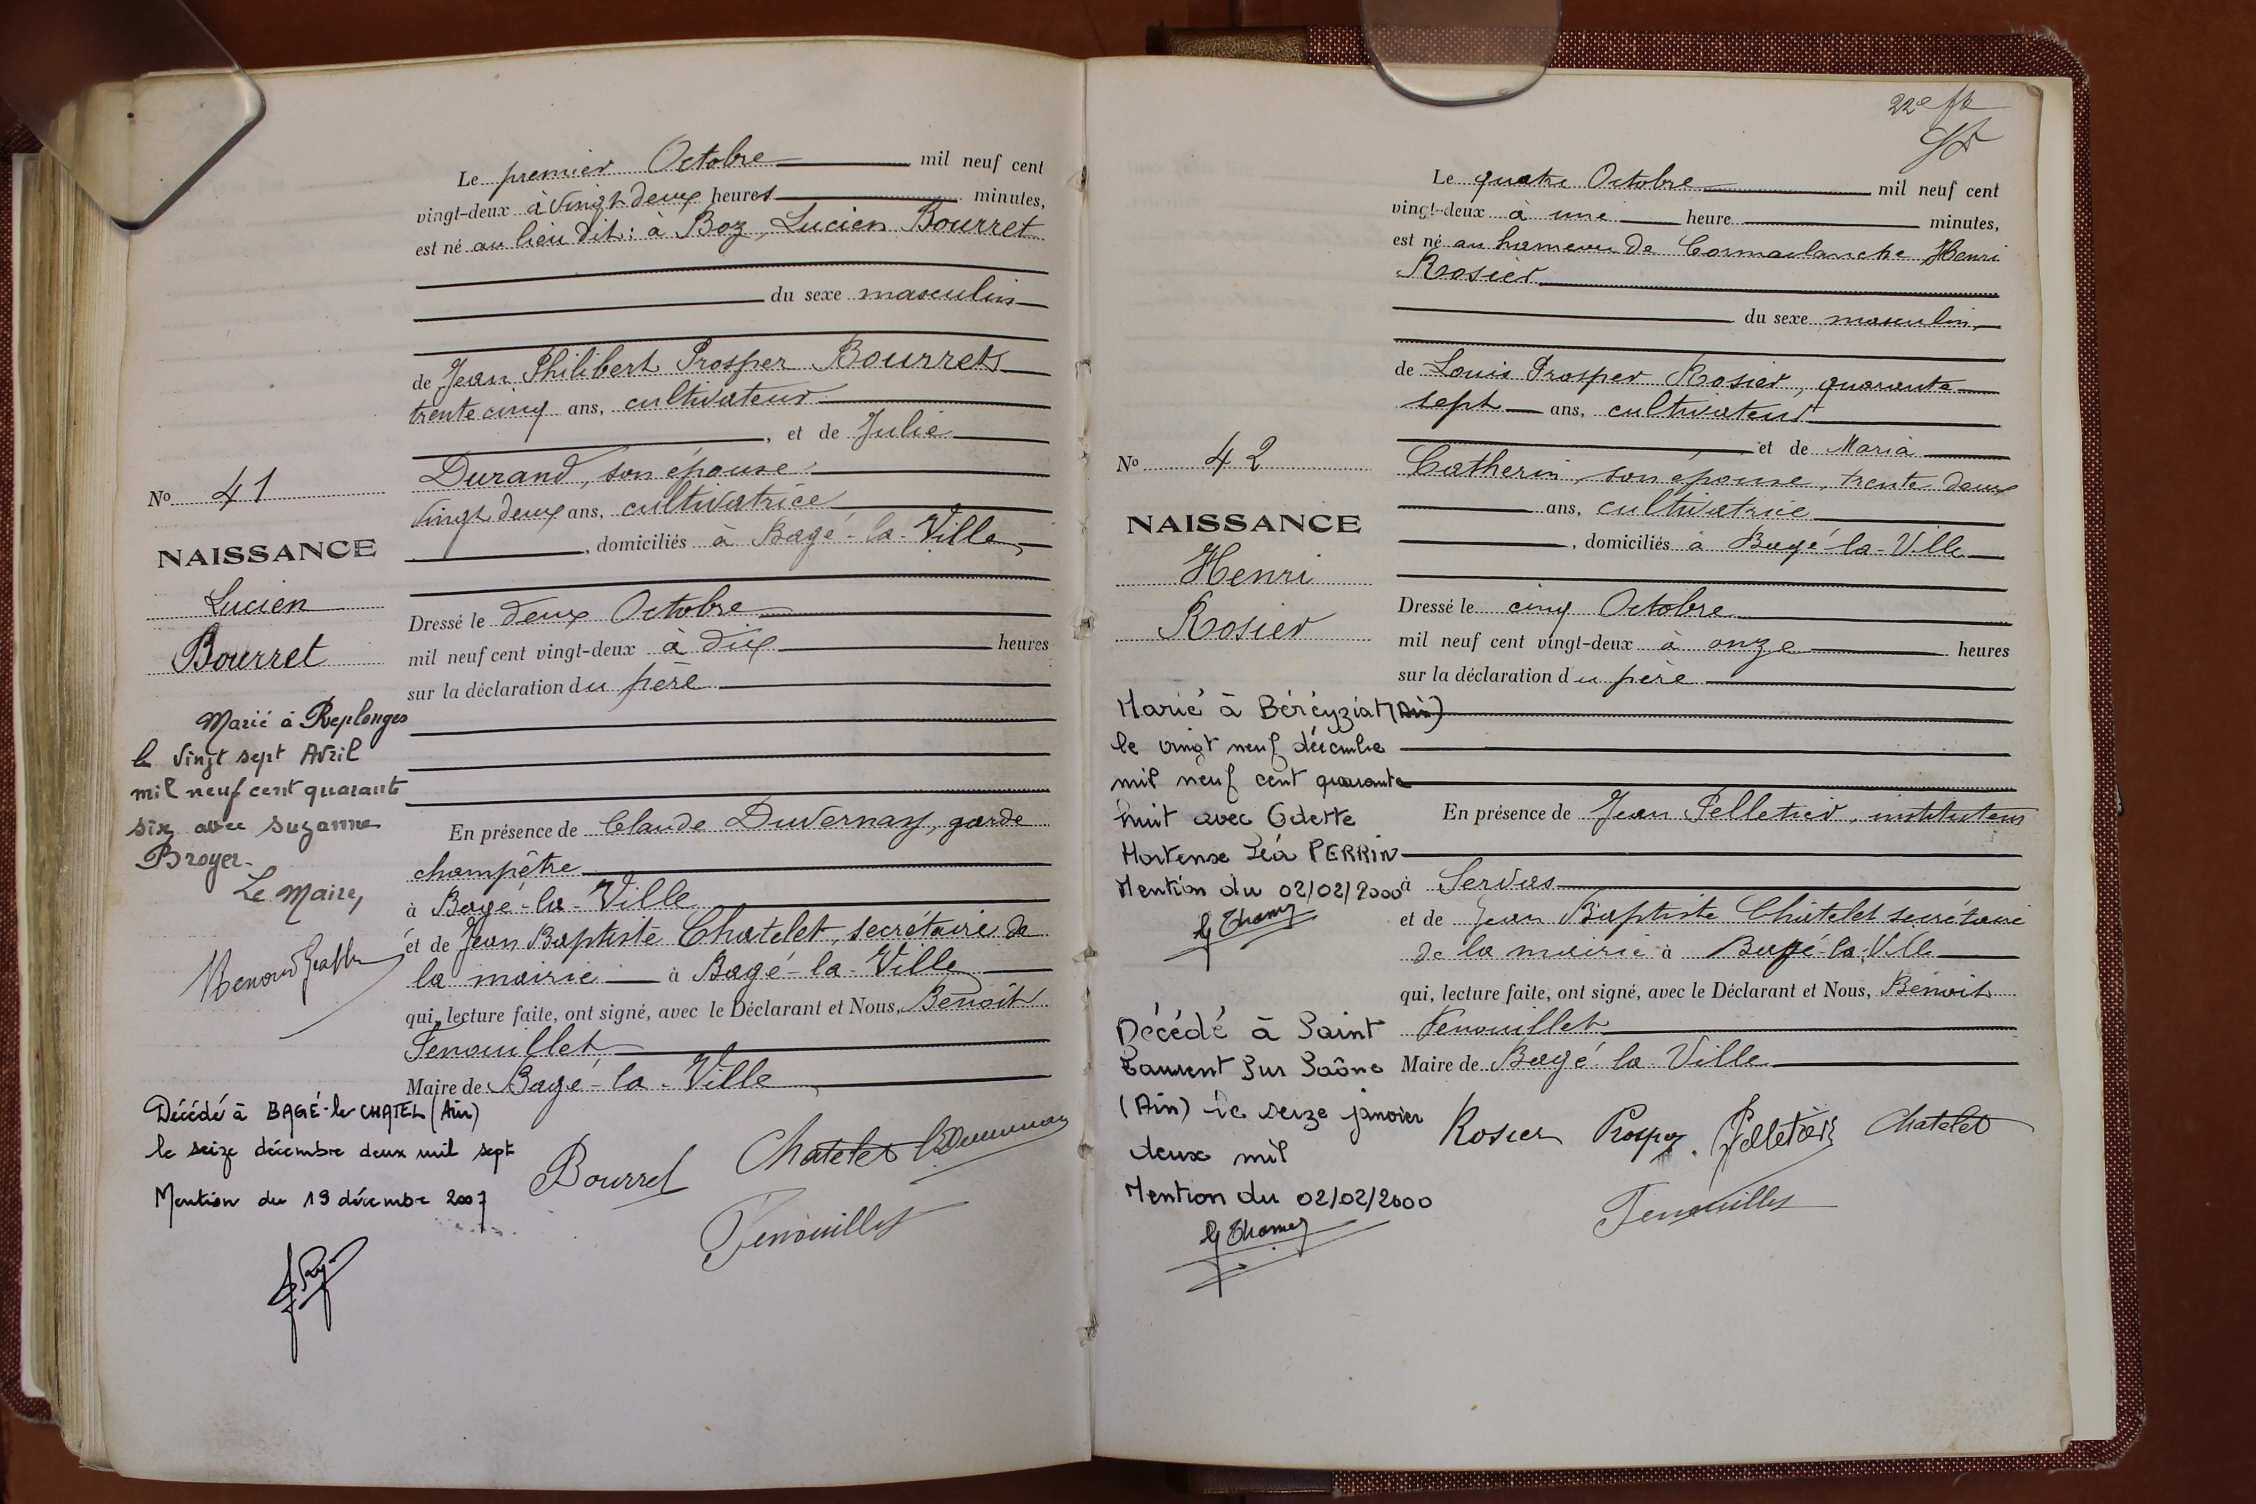 Le premier Octobre mil neuf cent
vingt-deux à vingt deux heures minutes,
est né au lieu dit : à Boz, Lucien Bourret
du sexe masculin
de Jean Philibert Prosper Bourret
trente cinq ans, cultivateur
, et de Julie
Durand, son épouse
vingt deux ans, cultivatrice
, domiciliés à Bagé-la-Ville,
Dressé le deux Octobre
mil neuf cent vingt-deux à dix heures
sur la déclaration du père
En présence de Claude Duvernay, garde
champêtre
à Bagé-la-Ville
et de Jean Baptiste Chatelet, secrétaire de
la mairie à Bagé-la-Ville
qui, lecture faite, ont signé, avec le Déclarant et Nous, Benoit
Fenouillet
Maire de Bagé-la-Ville
Bourret Chatelet C. Duvernay
Fenouillet
No 41
NAISSANCE
Lucien
Bourret
Marié à Replonges
le vingt sept Avril
mil neuf cent quarante
six avec Suzanne
Broyer.
Le Maire,
Décédé à BAGÉ-le-CHATEL (Ain)
le seize décembre deux mil sept
Mention du 19 décembre 2007
22e
Le quatre Octobre mil neuf cent
vingt-deux à une heure minutes,
est né au hameau de Cormaclanche Henri
Rosier
du sexe masculin
de Louis Prosper Rosier, quarante
sept ans, cultivateur
et de Maria
Catherin, son épouse, trente deux
ans, cultivatrice
, domiciliés à Bagé-la-Ville
Dressé le cinq Octobre
mil neuf cent vingt-deux à onze heures
sur la déclaration du père
En présence de Jean Pelletier, instituteur
à Servas
et de Jean Baptiste Châtelet secrétaire
de la mairie à Bagé-la-Ville
qui, lecture faite, ont signé, avec le Déclarant et Nous, Benoit
Fenouillet
Maire de Bagé la Ville
Rosier Prosper. Pelletier Chatelet
Fenouillet
No 42
NAISSANCE
Henri
Rosier
Marié à Béréyziat (Ain)
le vingt neuf décembre
mil neuf cent quarante
huit avec Odette
Hortense Léa PERRIN
Mention du 02/02/2000
Décédé à Saint
Laurent Sur Saône
(Ain) le seize janvier
deux mil
Mention du 02/02/2000